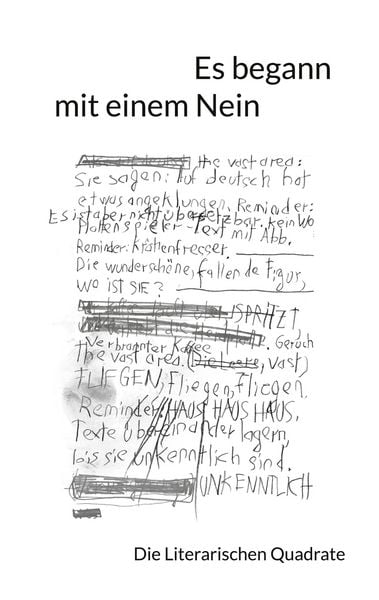 Es begann
mit einem Nein
the vast area:
Sie sagen: Auf deutsch hat
etwas angeklungen. Reminder:
Es ist aber nicht übersetzbar. kein Wo
Rollenspieler-Text mit Abb.
Reminder: Krähenfresser.
Die wunderschöne, fallende Figur,
WO IST SIE?
SPRITZT,
Verbrannter Kaffee Geruch
the vast area. (Die Leere, vast)
FLIEGEN, Fliegen, fliegen.
Reminder: HAUS HAUS HAUS,
Texte übereinander lagern,
bis sie unkenntlich sind.
UNKENNTLICH
Die Literarischen Quadrate